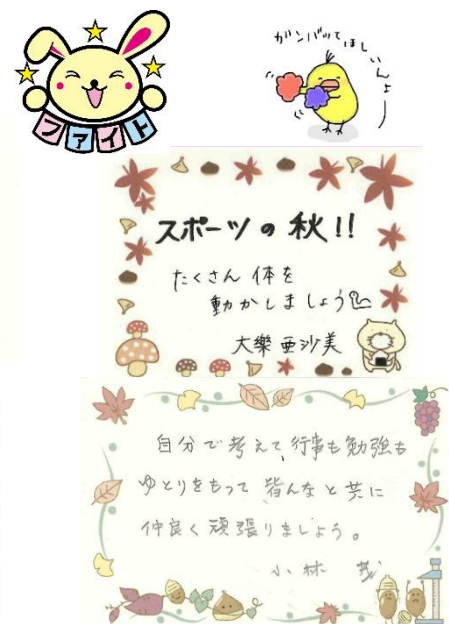 ファイト
ガンバッてほしいんよー
スポーツの秋!!
たくさん体を
動かしましょう
大樂 亜沙美
自分で考えて、行事も勉強も
ゆとりをもって 皆んなと共に
仲良く頑張りましょう。
小林